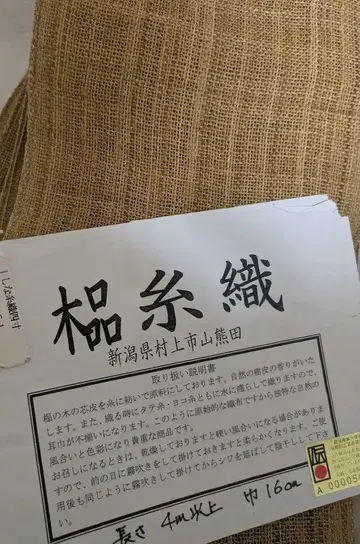 しな糸織四寸
榀糸織
新潟県村上市山熊田
取り扱い説明書
榀の木の芯皮を糸に紡いで原料にしております。自然の樹皮の香りがいた
します。また、織る時にタテ糸・ヨコ糸ともに水に濡らして織りますので、
耳巾が不揃いになります。このように原始的な織布ですから独特な自然の
風合いと色彩になり貴重な商品です。
お召しになるときは、乾燥しておりますと硬い風合いになる場合がありま
すので、前の日に霧吹きをして掛けておきますと柔らかくなります。ご使
用後も同じように霧吹きして掛けてからシワを延ばして陰干しして下さ
い。
長さ 4m以上 巾16cm
伝
A 000050